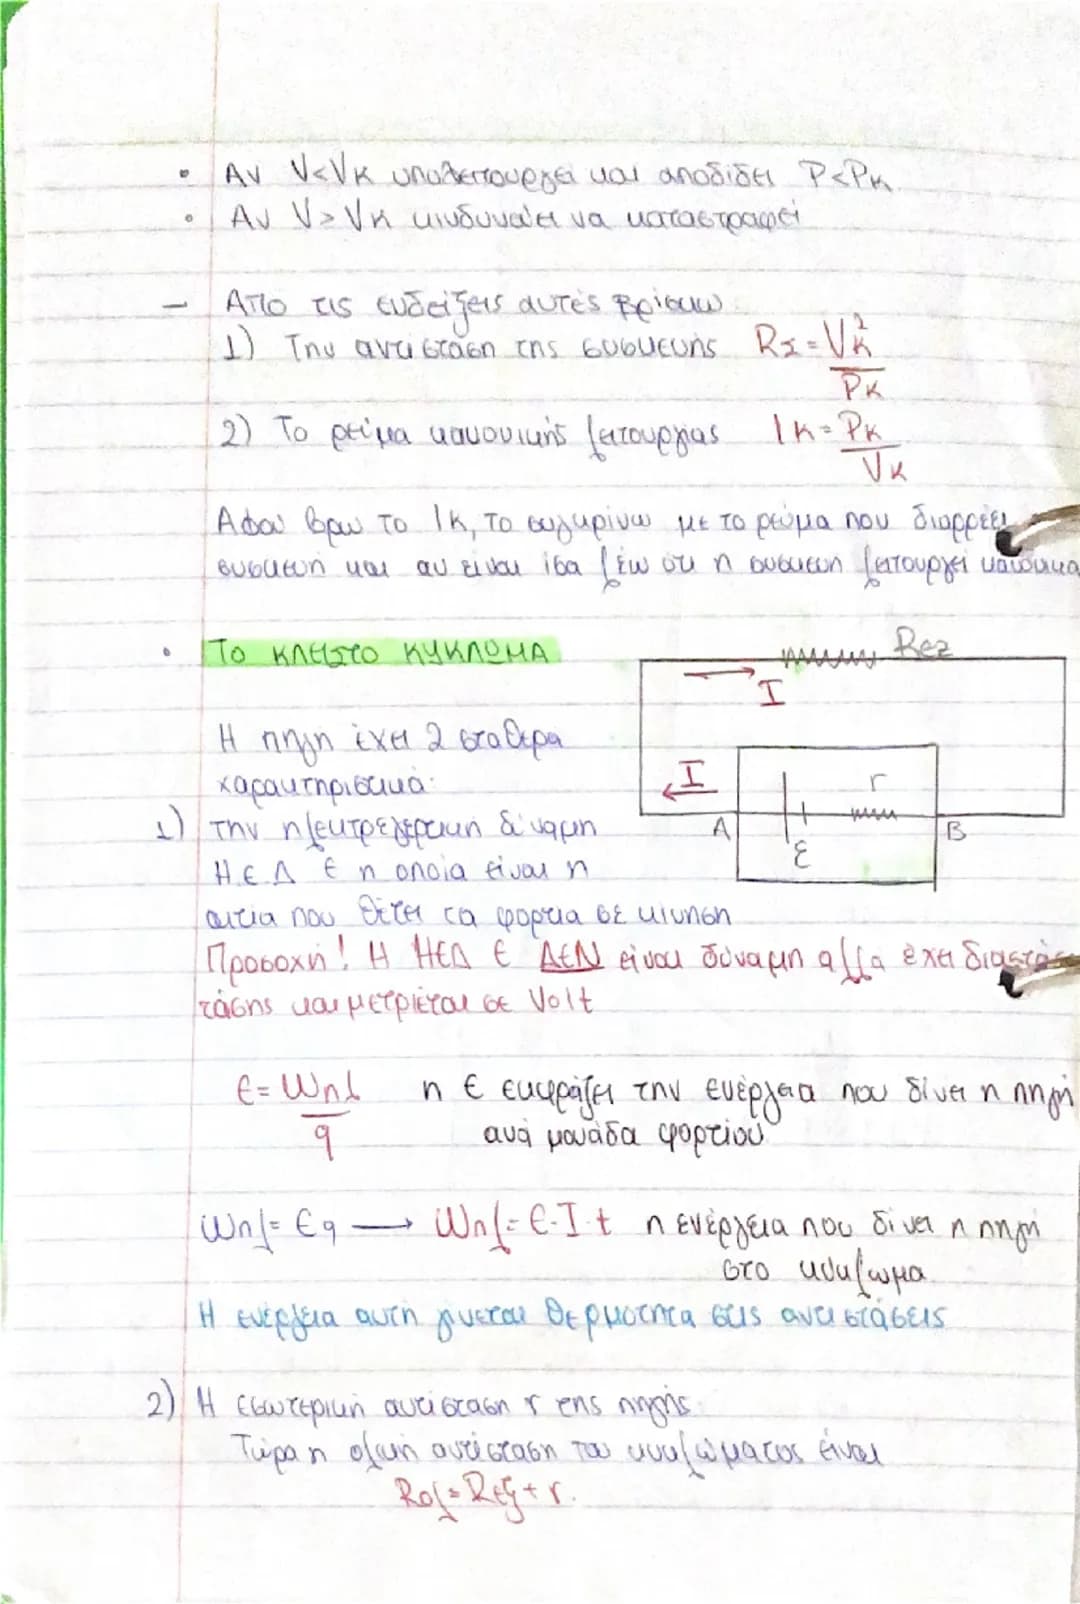 • Αν V<Vκ υπολειτουργεί και αποδίδει P<Pκ
• Αν V>Vκ κινδυνεύει να καταστραφεί
- Από τις ενδείξεις αυτές βρίσκω
1) Την αντίσταση της συσκευής RΣ=Vκ²/Pκ
2) Το ρεύμα κανονικής λειτουργίας Iκ=Pκ/Vκ
Αφού βρω το Iκ, το συγκρίνω με το ρεύμα που διαρρέει
συσκευή και αν είναι ίσα λέω ότι η συσκευή λειτουργεί κανονικα
• ΤΟ ΚΛΕΙΣΤΟ ΚΥΚΛΩΜΑ
Rεξ
I
Η πηγή έχει 2 σταθερα
χαρακτηριστικά:
I
r
1) την ηλεκτρεγερτική δύναμη
A
B
Η.Ε.Δ Ε η οποία είναι η
ε
αιτία που θέτει τα φορτια σε κινηση
Προσοχή! Η ΗΕΔ Ε ΔΕΝ είναι δύναμη αλλα έχει διαστάσ
τάσης και μετριέται σε Volt
Ε=Wπλ/q η Ε εκφράζει την ενέργεια που δίνει η πηγή
ανά μονάδα φορτίου
Wπλ=Εq → Wπλ=Ε·I·t η ενέργεια που δίνει η πηγή
στο κυκλωμα
Η ενέργεια αυτή γινεται θερμότητα στις αντιστάσεις
2) Η εσωτερική αντίσταση r της πηγής.
Τώρα η ολική αντίσταση του κυκλώματος είναι
Rολ=Rεξ+r.